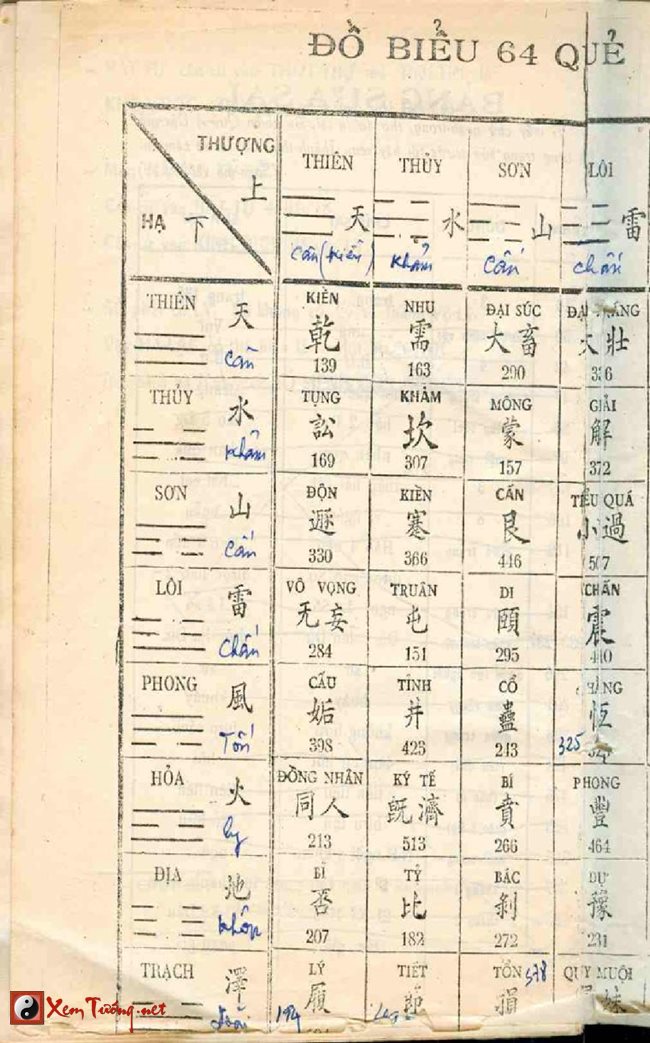 ĐỒ BIỂU 64 QUẺ
THƯỢNG 上
HẠ 下
THIÊN 天 Càn (Kiền)
THỦY 水 Khảm
SƠN 山 Cấn
LÔI 雷 Chấn
THIÊN 天 Càn
KIỀN 乾 139
NHU 需 163
ĐẠI SÚC 大畜 290
ĐẠI TRÁNG 大壯
THỦY 水 Khảm
TỤNG 訟 169
KHẢM 坎 307
MÔNG 蒙 157
GIẢI 解 372
SƠN 山 Cấn
ĐỘN 遯 330
KIỂN 蹇 366
CẤN 艮 446
TIỂU QUÁ 小過 507
LÔI 雷 Chấn
VÔ VỌNG 无妄 284
TRUÂN 屯 151
DI 頤 295
CHẤN 震 440
PHONG 風 Tốn
CẤU 姤 398
TỈNH 井 423
CỔ 蠱 243
HẰNG 恆 325
HỎA 火 Ly
ĐỒNG NHÂN 同人 213
KÝ TẾ 旣濟 513
BÍ 賁 266
PHONG 豐 464
ĐỊA 地 Khôn
BĨ 否 207
TỶ 比 182
BÁC 剝 272
DỰ 231
TRẠCH 澤 Đoài
LÝ 履 194
TIẾT 節
TỔN 損 378
QUY MUỘI 妹
XemTướng.net